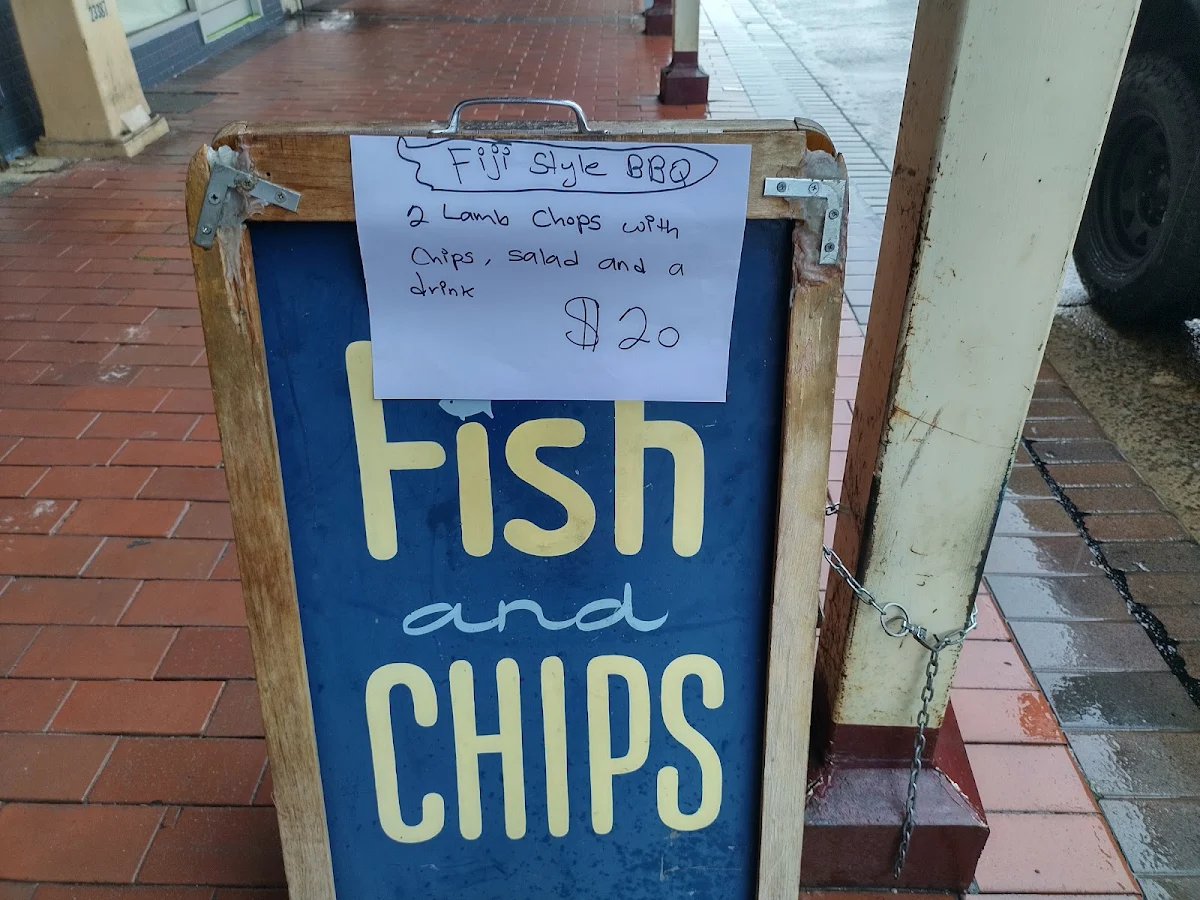 23387
Fiji Style BBQ
2 Lamb Chops with
Chips, salad and a
drink
$20
Fish
and
CHIPS